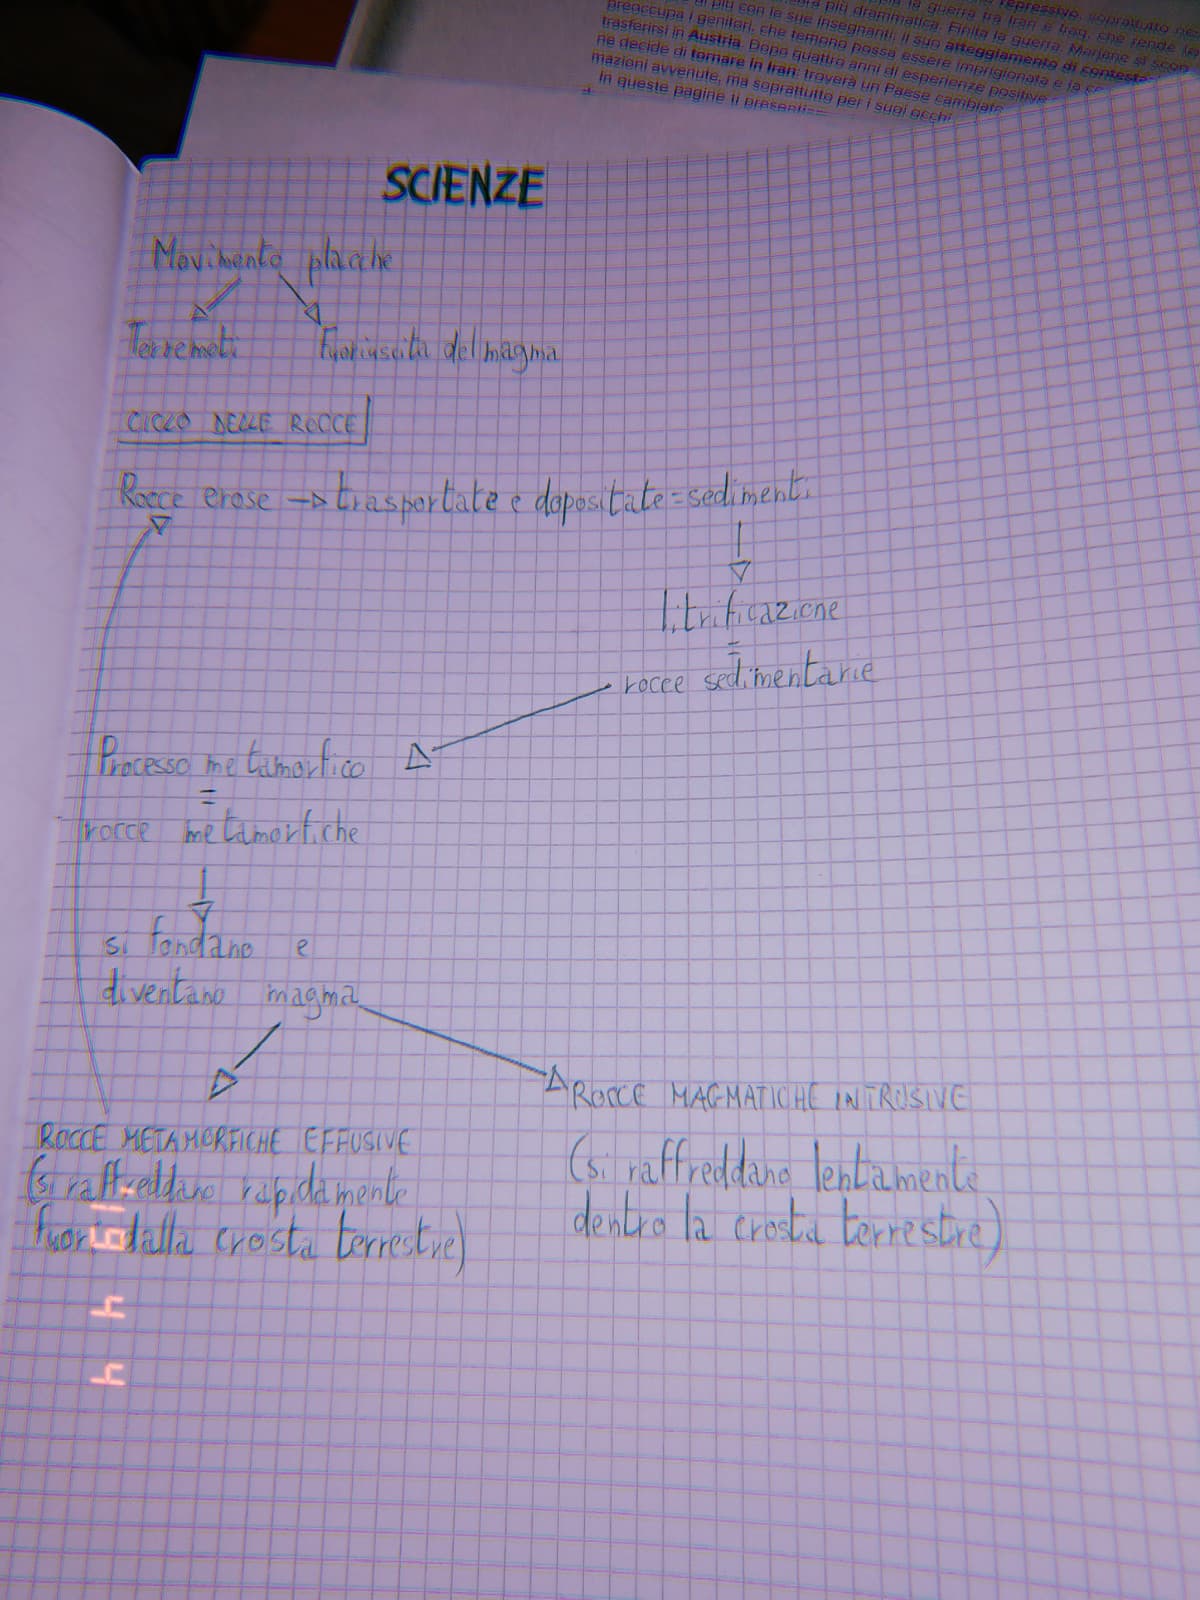 repressive, soprattutto
la guerra tra Iran e Iraq, che rende
più drammatica. Finita la guerra, Marjane si
di più con le sue insegnanti. Il suo atteggiamento di contest
preoccupa i genitori, che temono possa essere imprigionata e la
trasferirsi in Austria. Dopo quattro anni di esperienze positive
ne decide di tornare in Iran: troverà un Paese cambiato
mazioni avvenute, ma soprattutto per i suoi occhi
In queste pagine ti
SCIENZE
Movimento placche
Terremoti Fuoriuscita del magma
CICLO DELLE ROCCE
Rocce erose → trasportate e dopositate = sedimenti
litrificazione
=
rocce sedimentarie
Processo metamorfico
=
rocce metamorfiche
si fondano e
diventano magma
ROCCE MAGMATICHE INTRUSIVE
ROCCE METAMORFICHE EFFUSIVE
(si raffreddano lentamente
(si raffreddano rapidamente
dentro la crosta terrestre)
fuori dalla crosta terrestre)